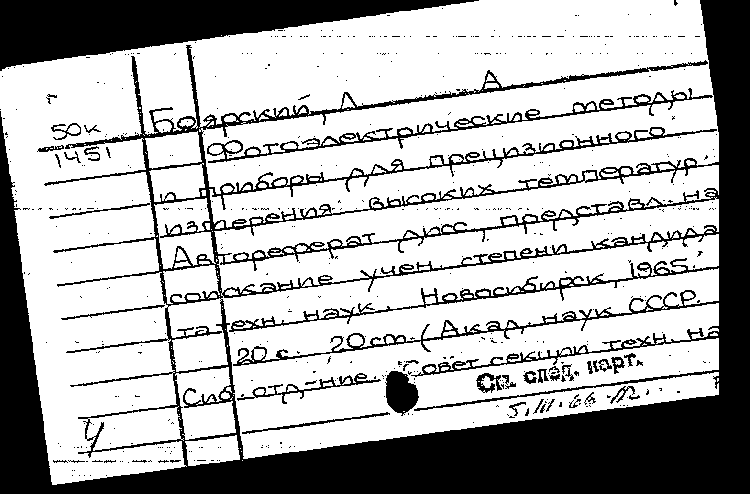 50к
1451
Боярский, Л А
Фотоэлектрические методы
и приборы для прецизионного
измерения высоких температур.
Автореферат дисс., представл. на
соискание учен. степени кандида
та техн. наук. Новосибирск, 1965.
20 с. 20 см. (Акад. наук СССР.
Сиб. отд-ние. Совет секции техн. на
См. след. карт.
5.III.66